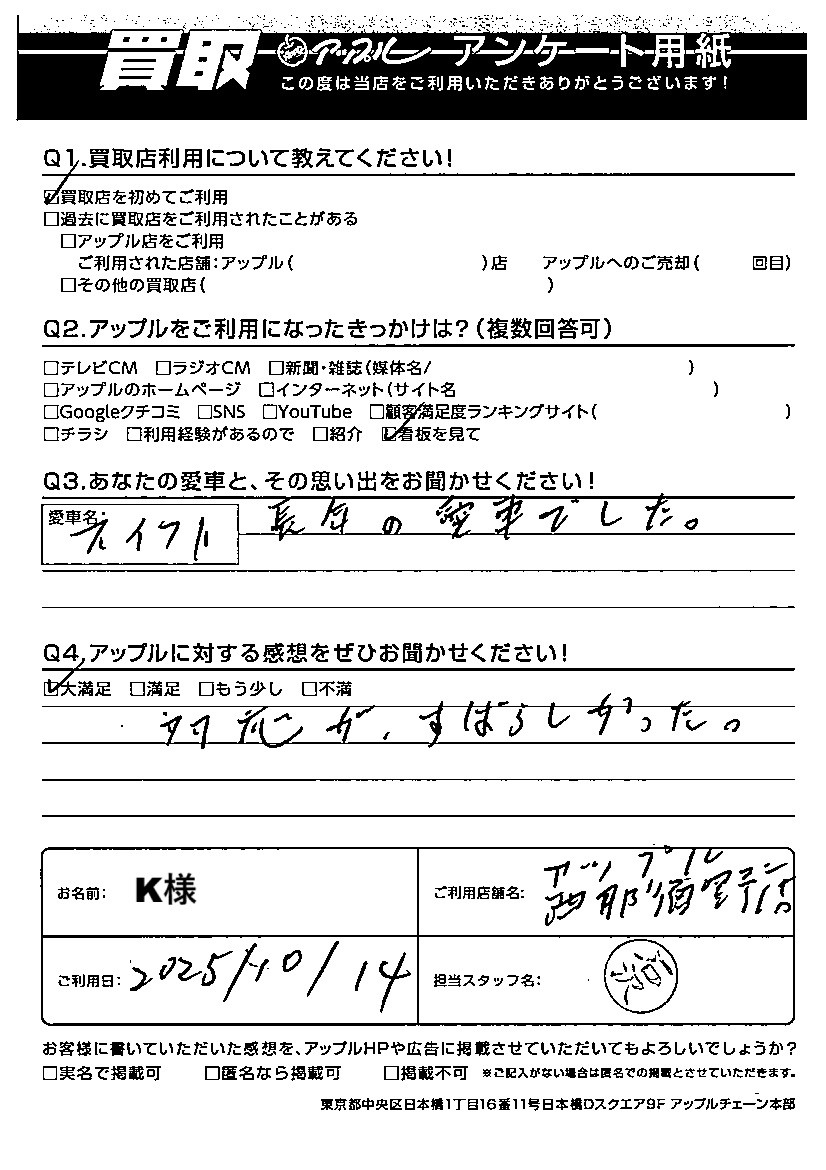 買取 アップル アンケート用紙
この度は当店をご利用いただきありがとうございます!
Q1.買取店利用について教えてください!
☑買取店を初めてご利用
□過去に買取店をご利用されたことがある
□アップル店をご利用
ご利用された店舗:アップル( )店 アップルへのご売却( 回目)
□その他の買取店( )
Q2.アップルをご利用になったきっかけは?(複数回答可)
□テレビCM □ラジオCM □新聞・雑誌(媒体名/ )
□アップルのホームページ □インターネット(サイト名 )
□Googleクチコミ □SNS □YouTube □顧客満足度ランキングサイト( )
□チラシ □利用経験があるので □紹介 ☑看板を見て
Q3.あなたの愛車と、その思い出をお聞かせください!
愛車名: 長年の愛車でした。
Q4.アップルに対する感想をぜひお聞かせください!
☑大満足 □満足 □もう少し □不満
対応が、すばらしかった。
お名前: K様 ご利用店舗名: アップル
西那須野店
ご利用日: 2025/10/14 担当スタッフ名:
お客様に書いていただいた感想を、アップルHPや広告に掲載させていただいてもよろしいでしょうか?
□実名で掲載可 □匿名なら掲載可 □掲載不可 ※ご記入がない場合は匿名での掲載とさせていただきます。
東京都中央区日本橋1丁目16番11号日本橋Dスクエア9F アップルチェーン本部